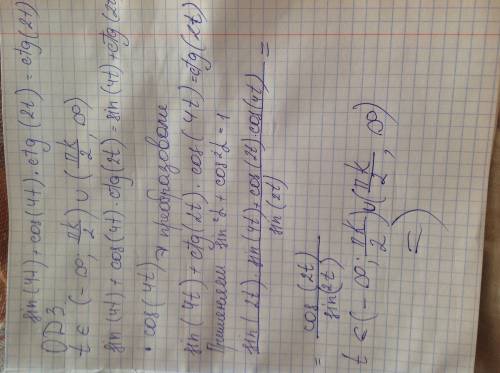 sin(4t)+cos(4t)·ctg(2t)=ctg(2t)
ОДЗ
t ∈ (-∞; πk/2) ∪ (πk/2, ∞)
sin(4t)+cos(4t)·ctg(2t)=sin(4t)+ctg(2t)
·cos(4t) → преобразование
sin(4t)+ctg(2t)·cos(4t)=ctg(2t)
Применяем sin²α+cos²α=1
sin(2t)·sin(4t)+cos(2t)·cos(4t)/sin(2t) =
= cos(2t)/sin(2t)
t ∈ (-∞; πk/2) ∪ (πk/2, ∞)
=)